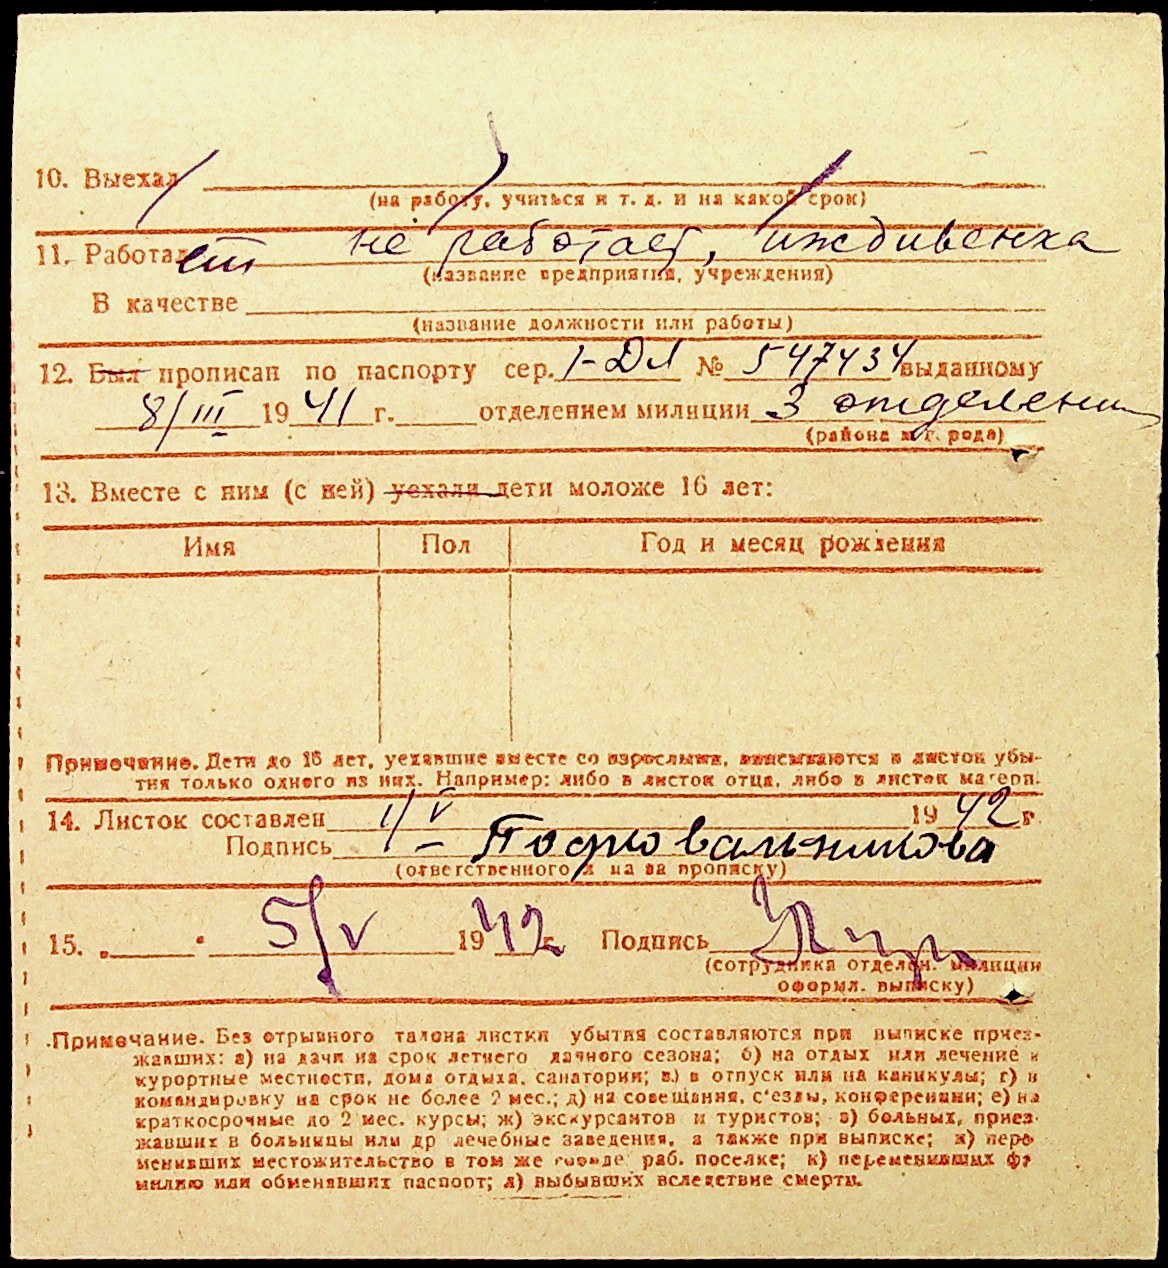 10. Выехал
(на работу, учиться и т. д. и на какой срок)
11. Работает не работает, иждивенка
(название предприятия, учреждения)
В качестве
(название должности или работы)
12. Был прописан по паспорту сер. I-ДЛ № 547434 выданному
8/III 1941 г. отделением милиции 3 отделени
(района и г. рода)
13. Вместе с ним (с ней) уехали дети моложе 16 лет:
Имя Пол Год и месяц рождения
Примечание. Дети до 16 лет, уехавшие вместе со взрослыми, вписываются в листок убы-
тия только одного из них. Например: либо в листок отца, либо в листок матери.
14. Листок составлен 1/V 1942 г.
Подпись Подковальникова
(ответственного л на за прописку)
15. „ “ 5/V 1942 г. Подпись
(сотрудника отделен. милиции
оформл. выписку)
Примечание. Без отрывного талона листки убытия составляются при выписке приез-
жавших: а) на дачи на срок летнего дачного сезона; б) на отдых или лечение в
курортные местности, дома отдыха, санатории; в) в отпуск или на каникулы; г) в
командировку на срок не более 2 мес.; д) на совещания, с'езды, конференции; е) на
краткосрочные до 2 мес. курсы; ж) экскурсантов и туристов; з) больных, приез-
жавших в больницы или др лечебные заведения, а также при выписке; и) пере-
менивших местожительство в том же городе раб. поселке; к) переменивших фа-
милию или обменявших паспорт; л) выбывших вследствие смерти.